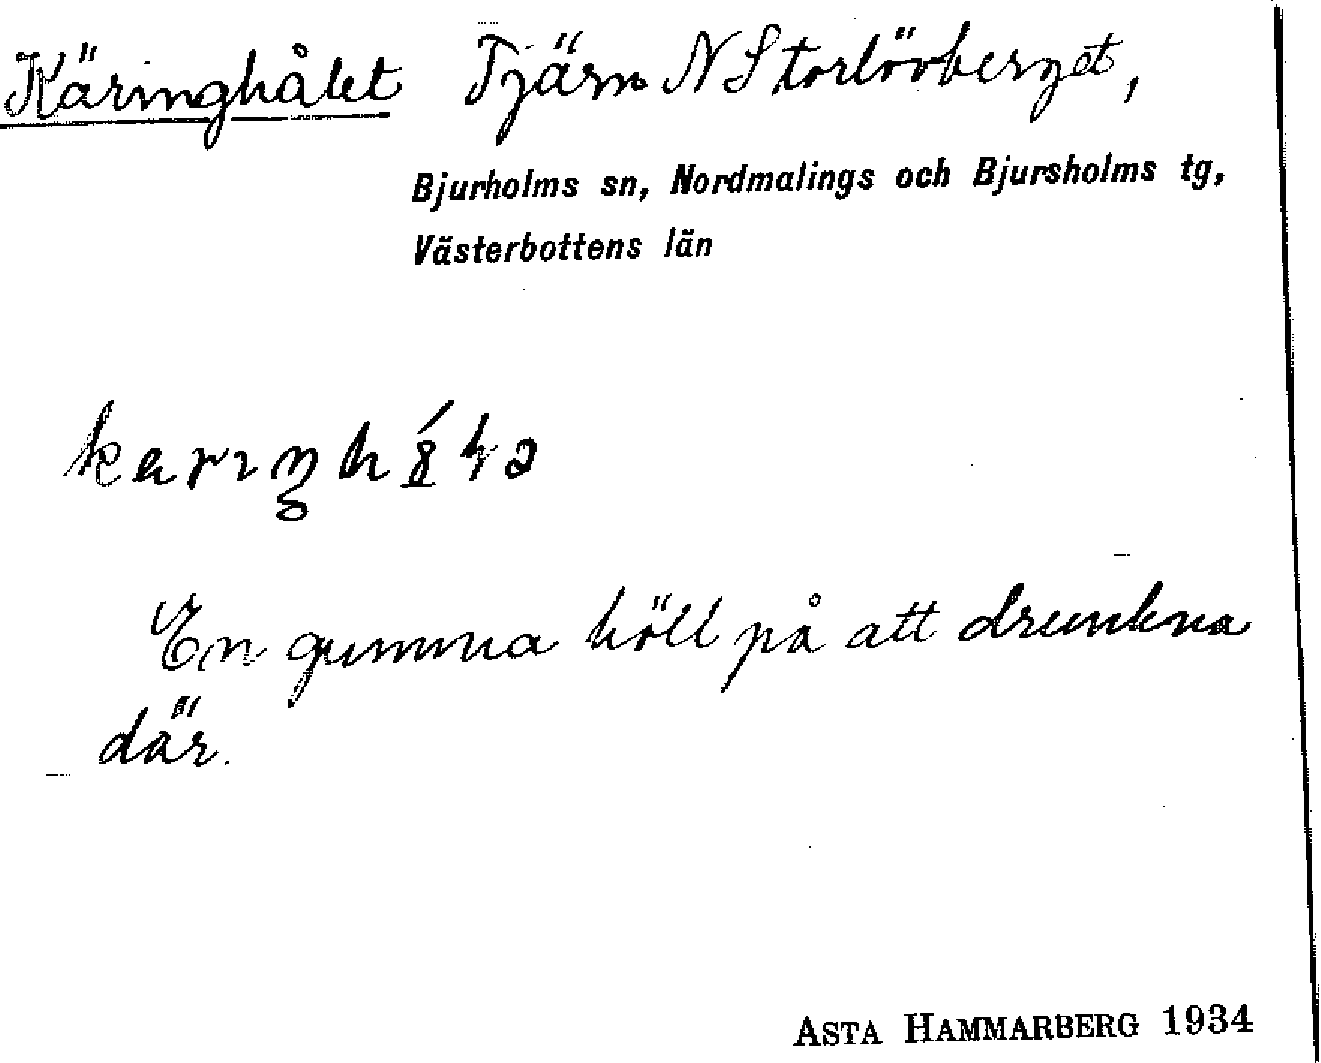 Käringhålet Tjärn N Storlövberget,
Bjurholms sn, Nordmalings och Bjursholms tg,
Västerbottens län
En gumma höll på att drunkna
där.
ASTA HAMMARBERG 1934